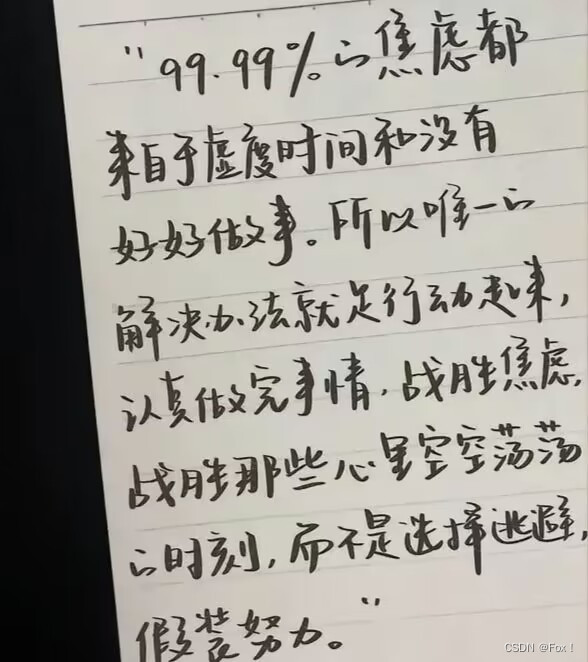 "99.99%的焦虑都
来自于虚度时间和没有
好好做事。所以唯一的
解决办法就是行动起来,
认真做完事情,战胜焦虑,
战胜那些心里空空荡荡
的时刻,而不是选择逃避,
假装努力。"
CSDN @Fox!